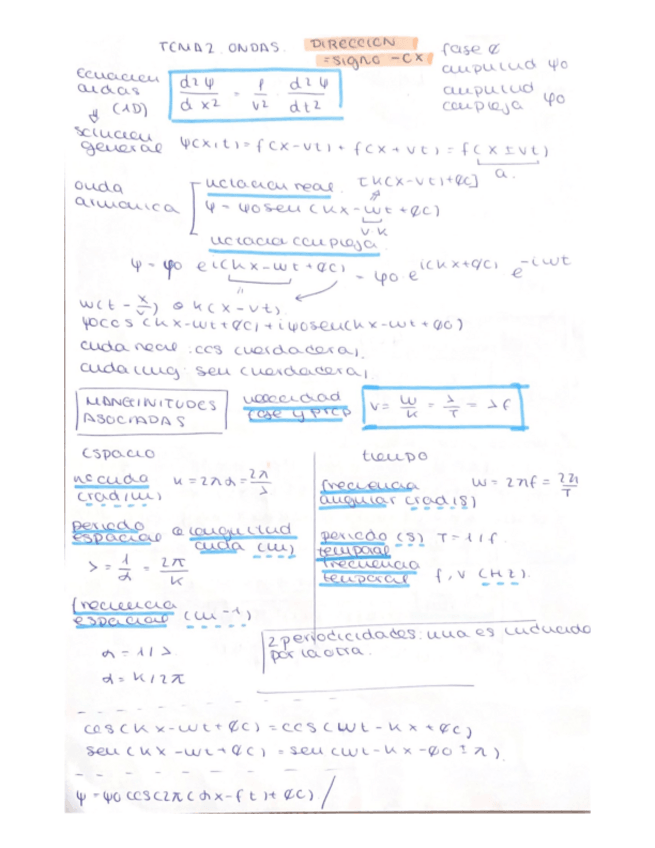 TEMA 2. ONDAS. DIRECCION = signo -cx
fase φ
amplitud ψ0
amplitud compleja ψ0
ecuacion ondas (1D)
d²ψ/dx² = 1/v² · d²ψ/dt²
solucion general ψ(x,t) = f(x-vt) + f(x+vt) = f(x±vt)
a.
onda armonica
notacion real. [k(x-vt)+φ0]
ψ = ψ0 sen (kx-wt+φ0)
v·k
notacion compleja.
ψ = ψ0 e^i(kx-wt+φ0) = ψ0 · e^i(kx+φ0) e^-iwt
w(t - x/v) o k(x-vt)
ψ0cos (kx-wt+φ0) + iψ0sen(kx-wt+φ0)
onda real: cos (
onda img: sen (
MANGINITUDES ASOCIADAS
velocidad fase y prop
v = w/k = λ/T = λf
espacio
no onda (rad/m) k = 2πα = 2π/λ
periodo espacial o longitud onda (m)
λ = 1/α = 2π/k
frecuencia espacial (m-1)
α = 1/λ
α = k/2π
tiempo
frecuencia angular (rad/s) w = 2πf = 2π/T
periodo (s) temporal T = 1/f.
frecuencia temporal f, ν (Hz).
2 periodicidades: una es inducida por la otra.
cos(kx-wt+φ0) = cos(wt-kx+φ0)
sen(kx-wt+φ0) = sen(wt-kx-φ0±π)
ψ = ψ0 cos(2π(αx-ft)+φ0)/